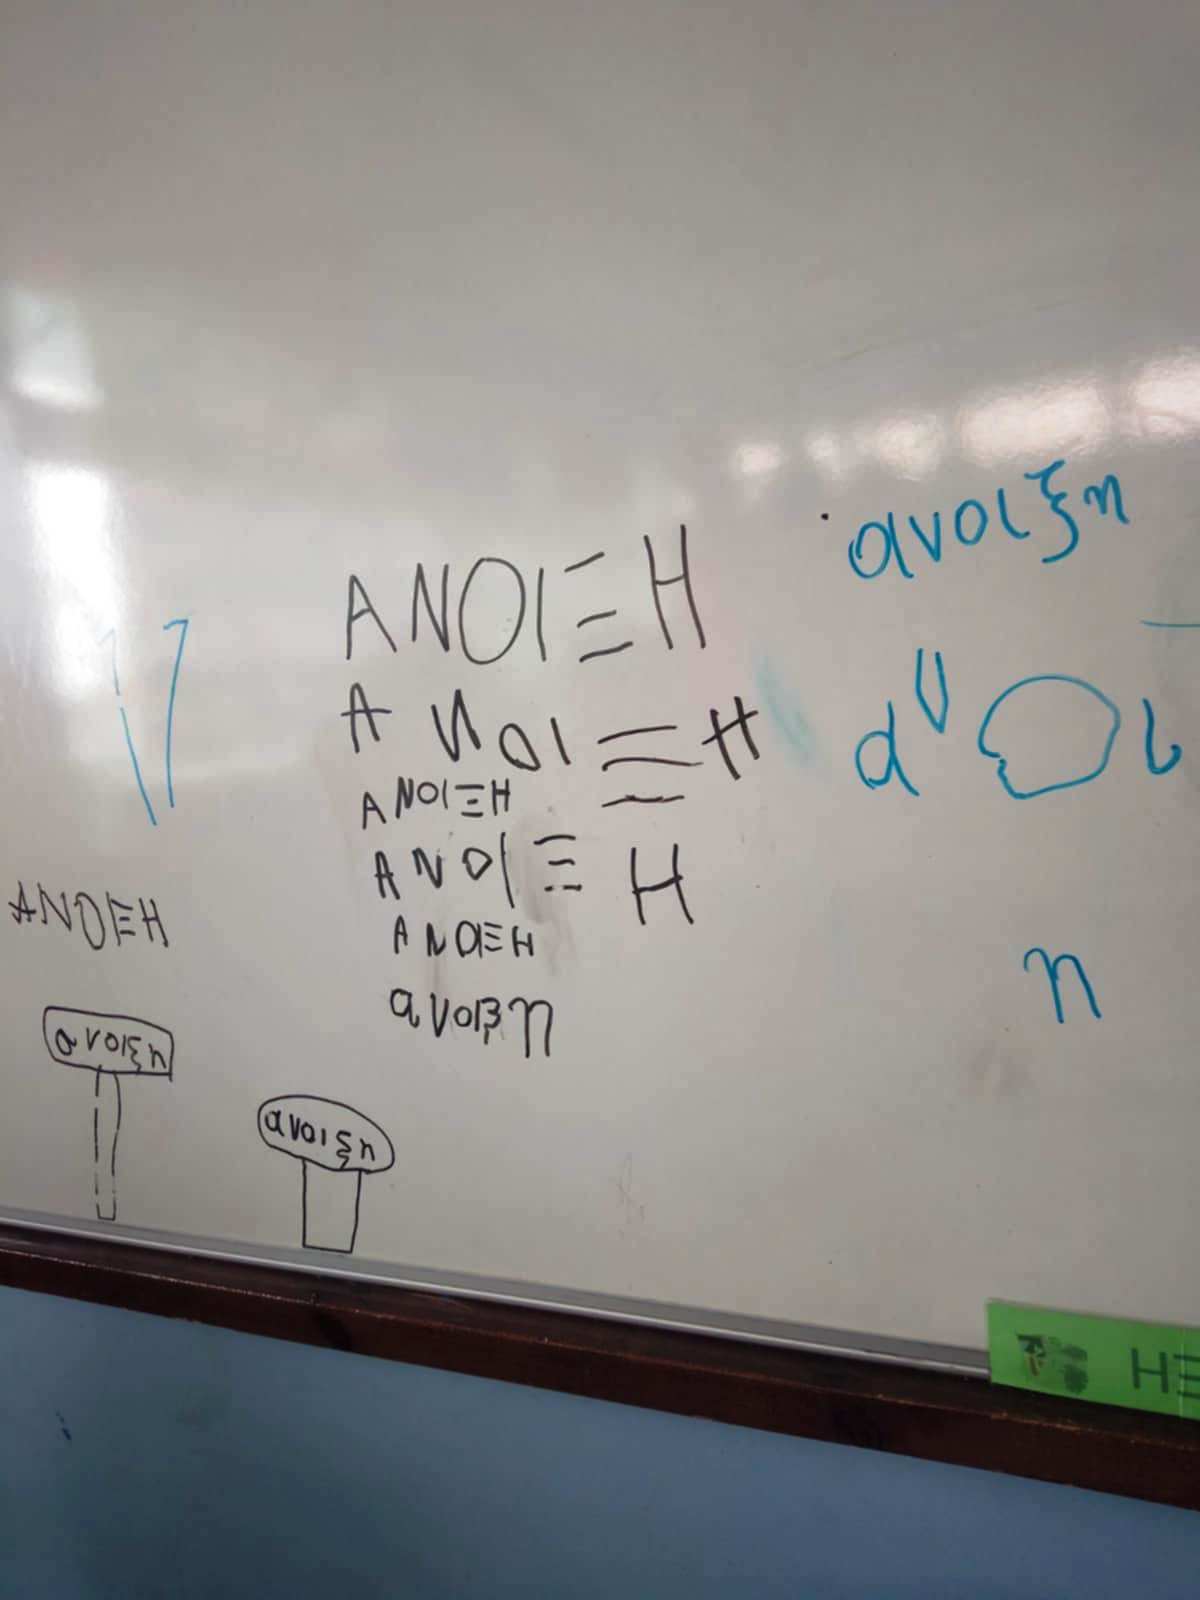 ΑΝΟΙΞΗ
ΑΝΟΙΞΗ
ΑΝΟΙΞΗ
ΑΝΟΙΞΗ
ΑΝΟΙΞΗ
ανοιξη
ΑΝΟΙΞΗ
ανοιξη
ανοιξη
ανοιξη
α ν ο ι
η
ΗΞ